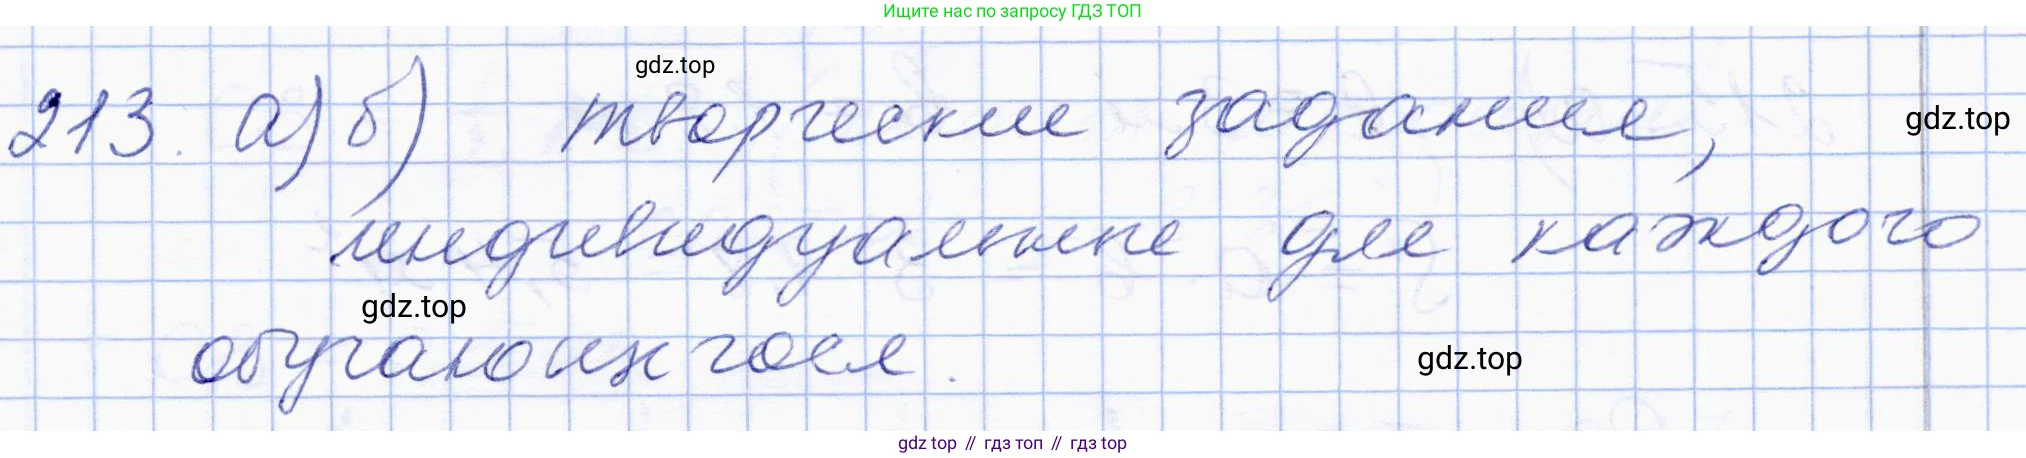 Ищите нас по запросу ГДЗ ТОП
gdz.top
213. а) б) творческие задания,
gdz.top
индивидуальные для каждого
gdz.top
обучающегося.
gdz.top
gdz top // гдз топ // гдз top